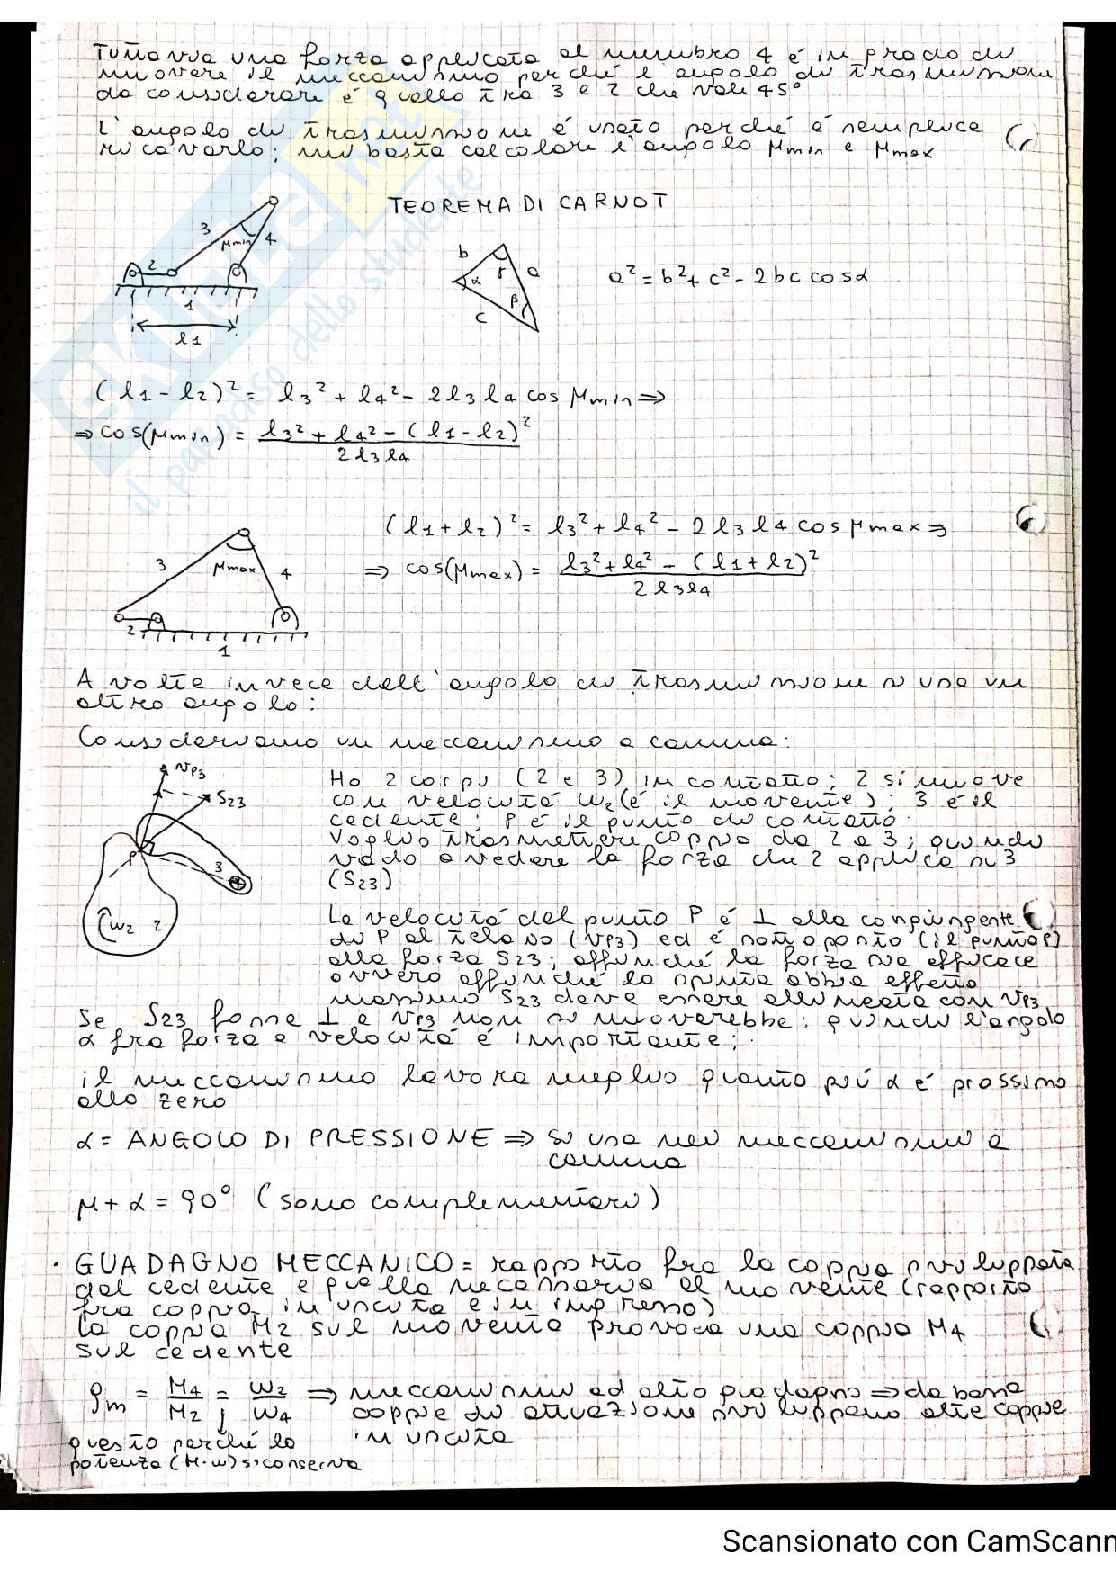 Tuttavia una forza applicata al membro 4 é in grado di
muovere il meccanismo perché l'angolo di trasmissione
da considerare é quello tra 3 e 2 che vale 45°
L'angolo di trasmissione é usato perché é semplice
ricavarlo; mi basta calcolare l'angolo μmin e μmax
TEOREMA DI CARNOT
3 μmin 4
2
1
l1
b γ a
α β
c
a² = b² + c² - 2bc cosα
(l1 - l2)² = l3² + l4² - 2l3 l4 cos μmin ⇒
⇒ cos(μmin) = l3² + l4² - (l1 - l2)² / 2l3l4
(l1 + l2)² = l3² + l4² - 2l3l4 cos μmax ⇒
⇒ cos(μmax) = l3² + l4² - (l1 + l2)² / 2l3l4
3 μmax 4
2
1
A volte invece dell'angolo di trasmissione si usa un
altro angolo:
Consideriamo un meccanismo a camma:
vP3
S23
P
3
ω2 2
Ho 2 corpi (2 e 3) in contatto; 2 si muove
con velocitá ω2 (é il movente); 3 é il
cedente; P é il punto di contatto.
Voglio trasmettere coppia da 2 a 3; quindi
vado a vedere la forza che 2 applica su 3
(S23)
La velocitá del punto P é ⊥ alla congiungente
di P al telaio (vP3) ed é sottoposto (il punto P)
alla forza S23; affinché la forza sia efficace
ovvero affinché la spinta abbia effetto
massimo S23 deve essere allineata con vP3
Se S23 fosse ⊥ a vP3 non si muoverebbe: quindi l'angolo
α fra forza e velocitá é importante;
il meccanismo lavora meglio quanto piú α é prossimo
allo zero
α = ANGOLO DI PRESSIONE ⇒ si usa nei meccanismi a
camma
μ + α = 90° (sono complementari)
· GUADAGNO MECCANICO = rapporto fra la coppia sviluppata
dal cedente e quella necessaria al movente (rapporto
fra coppia in uscita e in ingresso)
La coppia M2 sul movente provoca una coppia M4
sul cedente
gm = M4/M2 = ω2/ω4 ⇒ meccanismi ad alto guadagno ⇒ da basse
coppie di attuazione sviluppano alte coppie
in uscita
questo perché la
potenza (M·ω) si conserva
Scansionato con CamScann